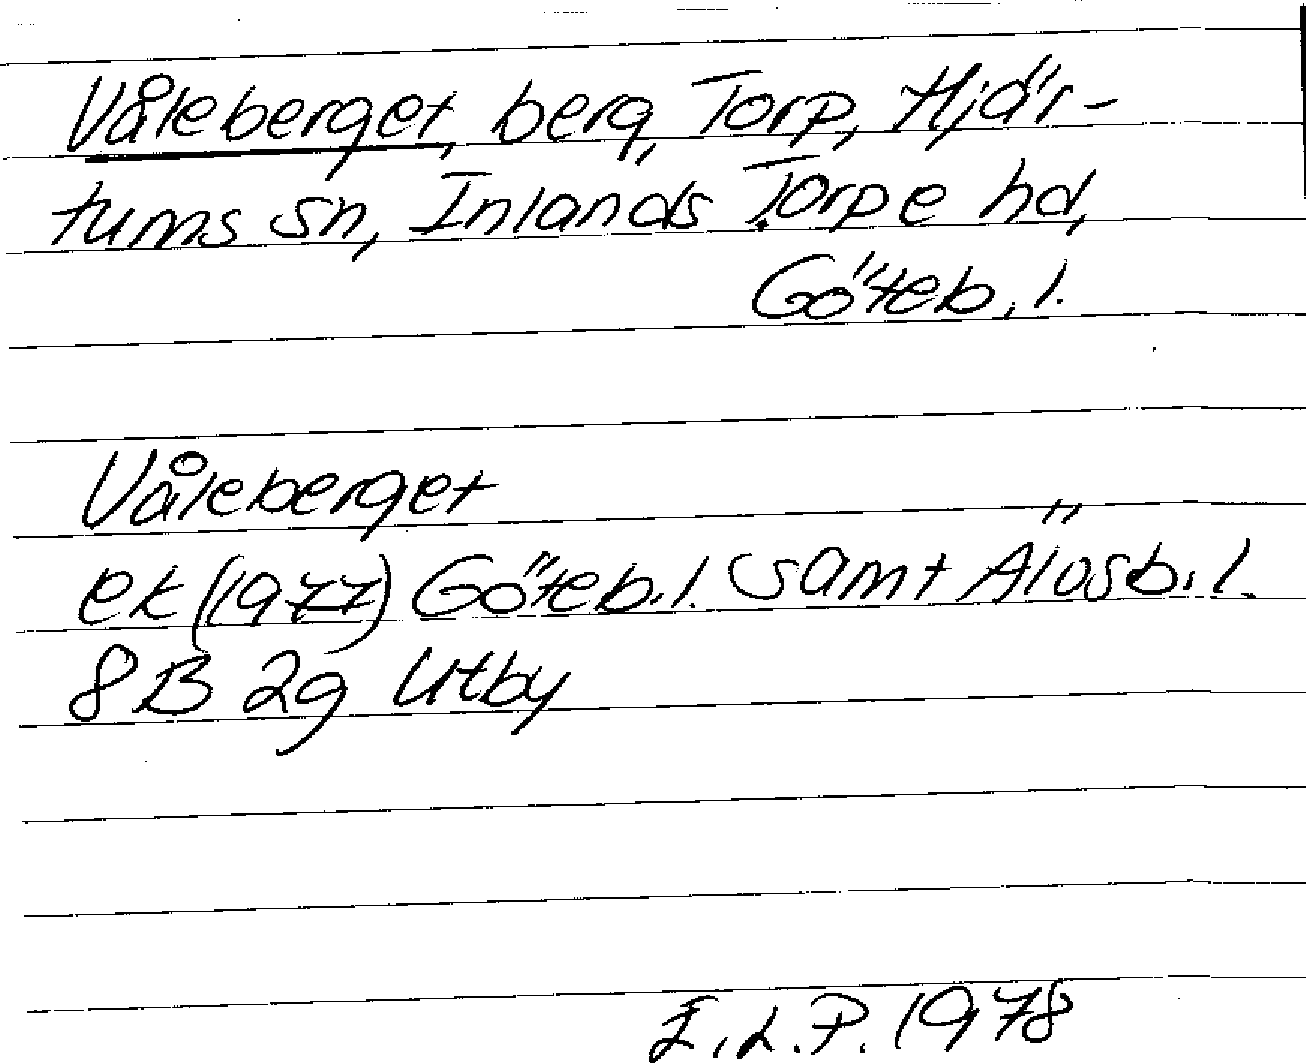 Våleberget, berg, Torp, Hjär-
tums sn, Inlands Torpe hd,
Göteb. l.
Våleberget
ek (1977) Göteb. l. samt Älvsb. l.
8B 2g Utby
I. L. P. 1978